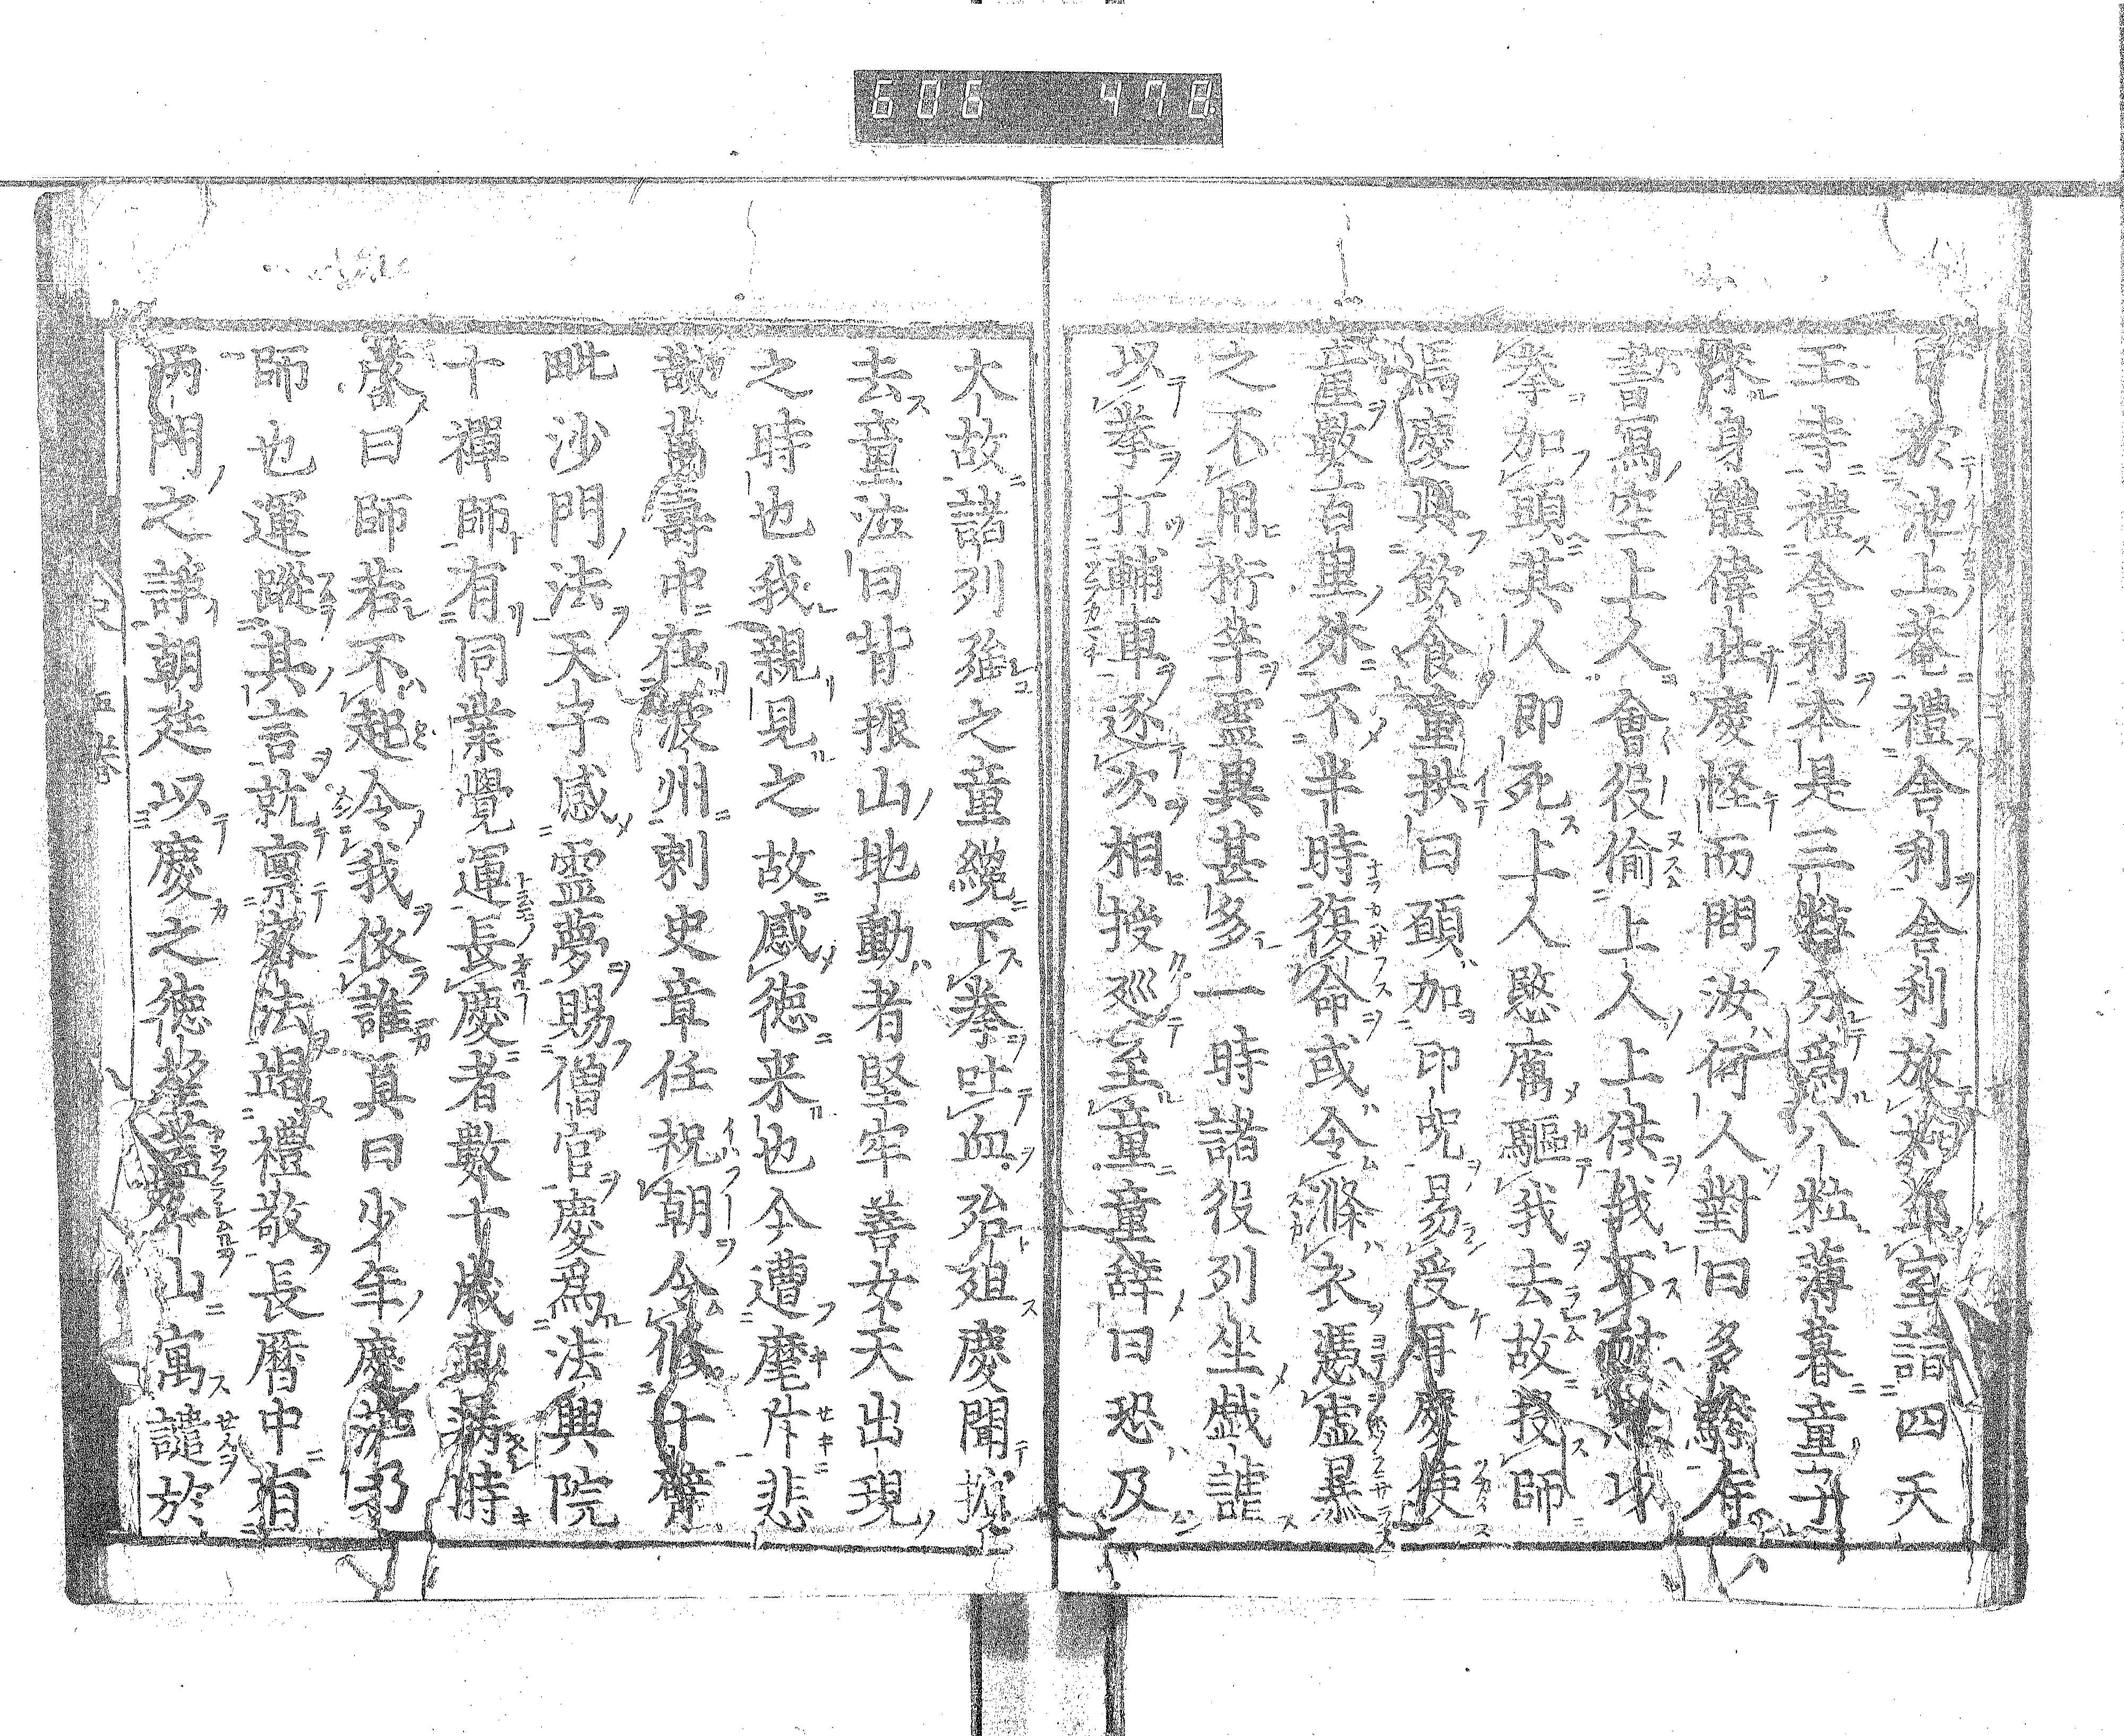 606 478
日於池上菴禮舍利舍利放如室詣四天
王寺禮舍利本是三粒分爲八粒薄暮童子
來身體偉壯慶怪而問汝何人對曰多
書寫空上人會役偷上人上供我不以
拳加頭其人即死上人慜厲驅我去故投師
焉慶與飲食童拱曰頭加印呪易受耳慶使
童數百里外不半時復命或令滌衣憑虛暴
之不用桁竿靈異甚多一時諸役列坐戯謔
以拳打輔車逐次相授巡至童童辭曰恐及
太故諸列強之童纔下拳吐血殆殂慶聞擯
去童泣曰背振山地動者堅牢善女天出現
之時也我親見之故感徳来也今遭麾斥悲
哉萬壽中在凌州刺史章任祝朝令修十臂
毗沙門法天子感霊夢賜僧官慶爲法興院
十禪師有同業覺運長慶者數十歳真病時
慶曰師若不起令我依誰真曰少年慶祚乃
師也運蹤其言就稟密法竭禮敬長暦中有
兩門之諍朝廷以慶之徳望蓋山寓讉於